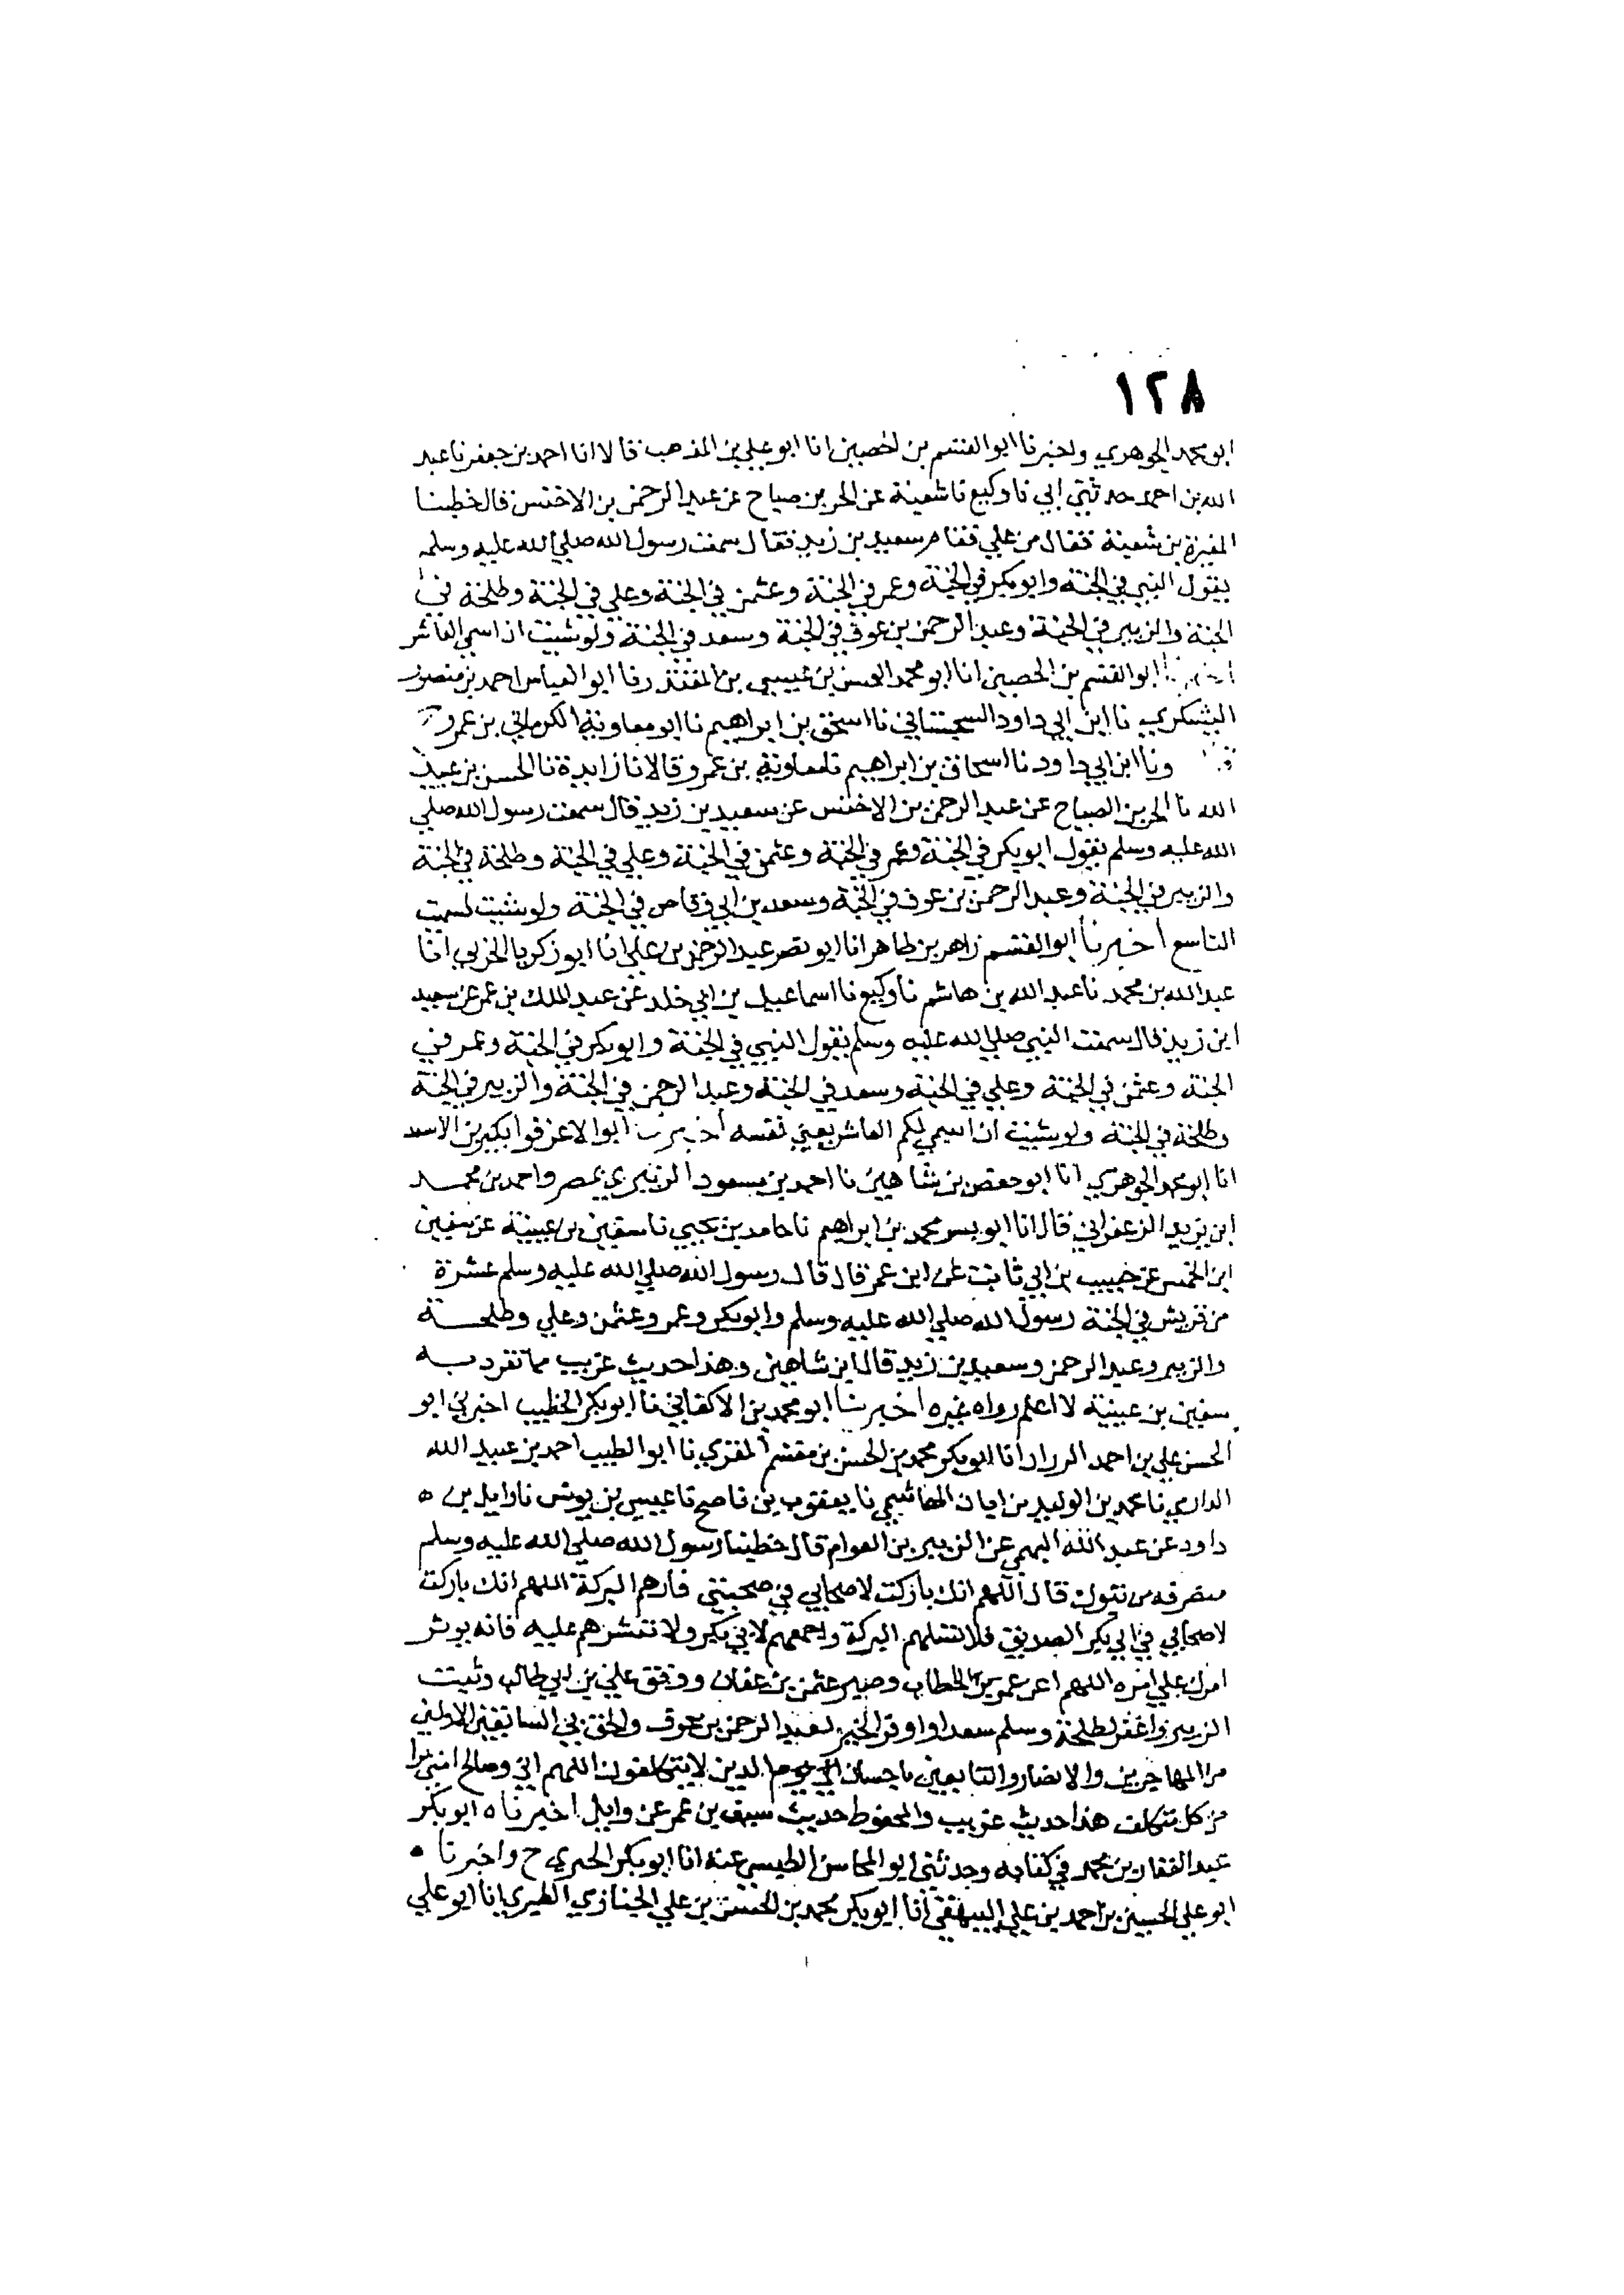 ١٢٨
ابو محمد الجوهري واخبرنا ابو القسم بن الحصين انا ابو علي بن المذهب قالا انا احمد بن جعفر نا عبد
الله بن احمد حدثني ابي نا وكيع نا شعبة عن الحر بن صياح عن عبد الرحمن بن الاخنس قال خطبنا
المغيرة بن شعبة فقال من علي فقام سعيد بن زيد فقال سمعت رسول الله صلي الله عليه وسلم
يقول النبي في الجنة وابو بكر في الجنة وعمر في الجنة وعثمن في الجنة وعلي في الجنة وطلحة في
الجنة والزبير في الجنة وعبد الرحمن بن عوف في الجنة وسعد في الجنة ولو شيت ان اسمي العاشر
ابو القسم بن الحصين انا ابو محمد الحسن بن عيسي بن المقتدر نا ابو العباس احمد بن منصور
اليشكري نا ابن ابي داود السجستاني نا اسحق بن ابراهيم نا ابو معاوية الكرماني بن عمرو
ونا ابن ابي داود نا اسحاق بن ابراهيم نا معاوية بن عمرو قالا نا زايدة نا الحسن بن عبيد
الله نا الحر بن الصياح عن عبد الرحمن بن الاخنس عن سعيد بن زيد قال سمعت رسول الله صلي
الله عليه وسلم يقول ابو بكر في الجنة وعمر في الجنة وعثمن في الجنة وعلي في الجنة وطلحة في الجنة
والزبير في الجنة وعبد الرحمن بن عوف في الجنة وسعد بن ابي وقاص في الجنة ولو شيت لسميت
التاسع اخبرنا ابو القسم زاهر بن طاهر انا ابو نصر عبد الرحمن بن علي انا ابو زكريا الحربي انا
عبد الله بن محمد نا عبد الله بن هاشم نا وكيع نا اسماعيل بن ابي خلد عن عبد الملك بن عمر عن سعيد
ابن زيد قال سمعت النبي صلي الله عليه وسلم يقول النبي في الجنة وابو بكر في الجنة وعمر في
الجنة وعثمن في الجنة وعلي في الجنة وسعد في الجنة وعبد الرحمن في الجنة والزبير في الجنة
وطلحة في الجنة ولو شيت ان اسمي لكم العاشر يعني نفسه اخبرنا ابو الاعز قراتكين بن الاسعد
انا ابو محمد الجوهري انا ابو حفص بن شاهين نا احمد بن مسعود الزبيري بمصر واحمد بن محمد
ابن يزيد الزعفراني قال انا ابو بسر محمد بن ابراهيم نا حامد بن يحيي نا سفين بن عيينة عن سفين
ابن الخمس عن حبيب بن ابي ثابت عن ابن عمر قال قال رسول الله صلي الله عليه وسلم عشرة
من قريش في الجنة رسول الله صلي الله عليه وسلم وابو بكر وعمر وعثمن وعلي وطلحة
والزبير وعبد الرحمن وسعيد بن زيد قال ابن شاهين وهذا حديث غريب مما تفرد به
سفين بن عيينة لا اعلم رواه غيره اخبرنا ابو محمد بن الاكفاني نا ابو بكر الخطيب اخبرني ابو
الحسن علي بن احمد الرزاز انا ابو بكر محمد بن الحسن بن مقسم المقري نا ابو الطيب احمد بن عبيد الله
الداري نا محمد بن الوليد بن ابان الهاشمي نا يعقوب بن ناصح نا عيسي بن يونس نا وايل بن ه
داود عن عبد الله البهي عن الزبير بن العوام قال خطبنا رسول الله صلي الله عليه وسلم
منصرفه من تبوك قال اللهم انك باركت لاصحابي في صحبتي فارهم البركة اللهم انك باركت
لاصحابي في ابي بكر الصديق فلا تسلبهم البركة واجمعهم لابي بكر ولا تنشرهم عليه فانه يوثر
امرك علي امره اللهم اعز عمر بن الخطاب وصبر عثمن بن عفان ووفق علي بن ابي طالب وثبت
الزبير واغفر لطلحة وسلم سعدا واوقر الخير لعبد الرحمن بن عوف والحق بي السابقين الاولين
من المهاجرين والانصار والتابعين باحسان الي يوم الدين لا يتكلفون اللهم اني وصالح امتي برا
من كل متكلف هذا حديث غريب والمحفوظ حديث سيف بن عمر عن وايل اخبرنا ه ابو بكر
عبد الغفار بن محمد في كتابه وحدثني ابو المحاسن الطبسي عنه انا ابو بكر الحيري ح واخبرنا
ابو علي الحسين بن احمد بن علي البيهقي انا ابو بكر محمد بن الحسن بن علي الخبازي الطبري انا ابو علي